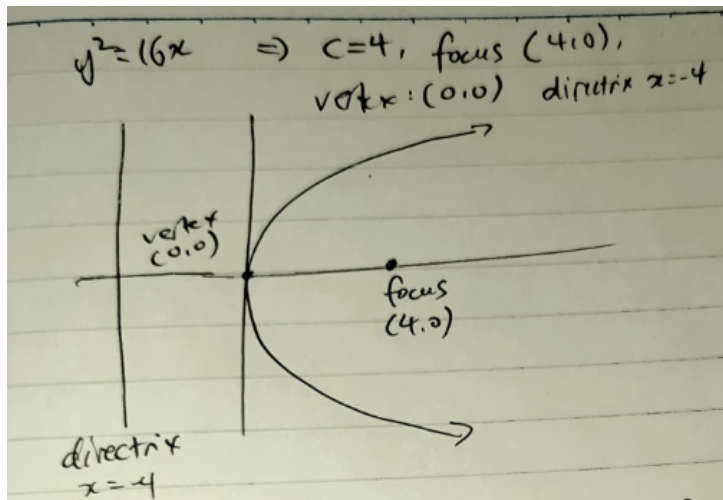 y²=16x ⇒ c=4, focus (4,0),
vertex: (0,0) directrix x=-4
vertex
(0,0)
focus
(4,0)
directrix
x=-4